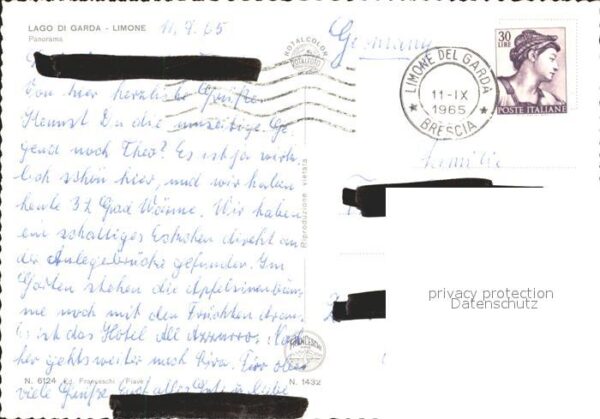 LAGO DI GARDA - LIMONE
Panorama
11. 9. 65
Germany
ROTALCOLOR
LIMONE DEL GARDA
11-IX
1965
BRESCIA
30
LIRE
POSTE ITALIANE
Von hier herzliche Grüße.
Kennst Du die Ge-
gend noch Theo? Es ist ja wirk-
lich schön hier, und wir haben
heute 32 Grad Wärme. Wir haben
ein schattiges direkt an
der Anlegebrücke gefunden. Im
Garten stehen die Apfelsinenbäu-
me noch mit den Früchten dran.
Es ist das Hotel All Azzurro. Nach
her gehts weiter nach Riva. Für
viele Grüße und alles Gute in Liebe
Familie
Riproduzione vietata
privacy protection
Datenschutz
N. 6124 Ed. Franceschi (Piave)
N. 1432